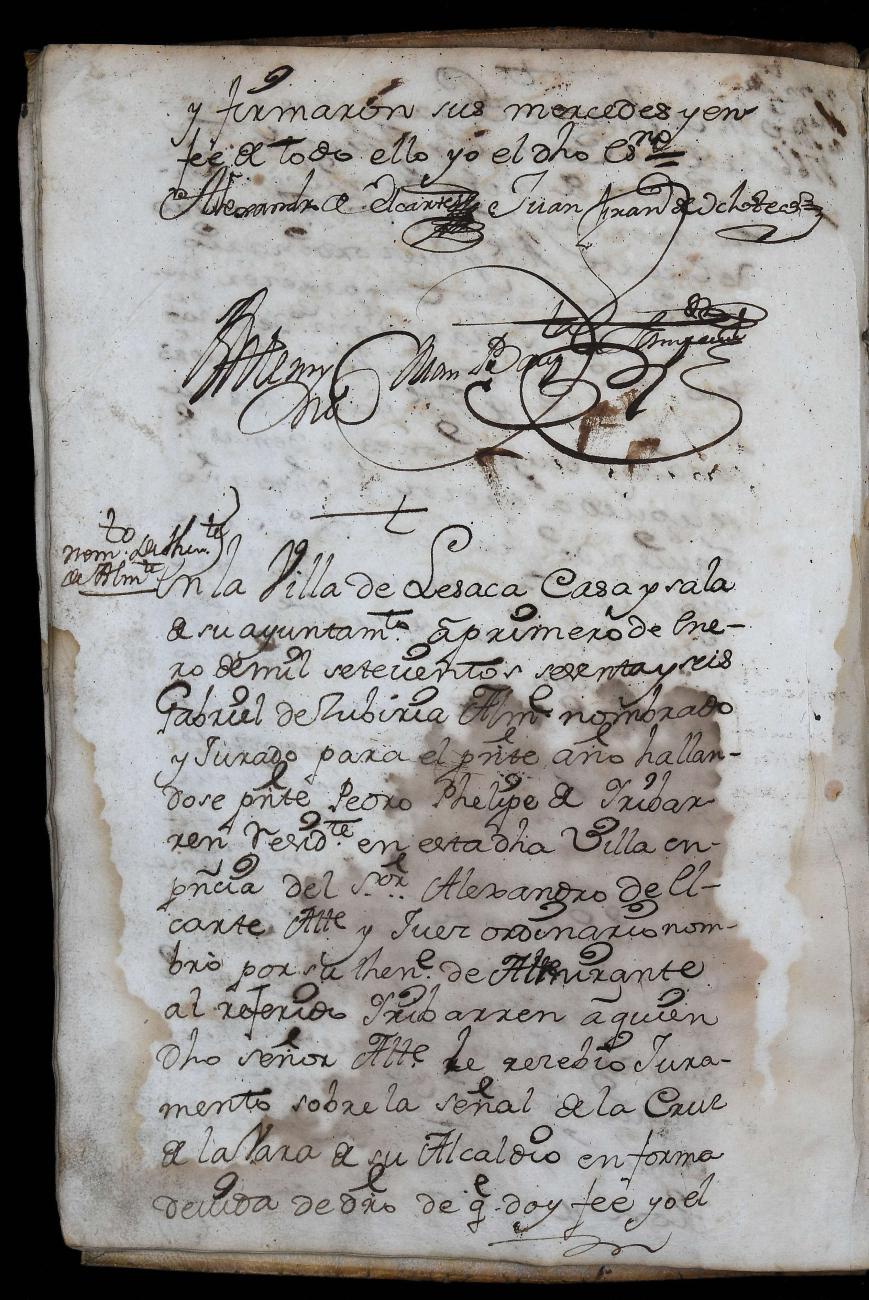 y firmaron sus mercedes y en
feé de todo ello yo el dho Esno =
Alexandro de Elcarte Juan Fran de
Ante my
Man
t
nom.to de Then.te
de Alm.te
En la Villa de Lesaca Casa y sala
de su ayuntam.to a primero de Ene-
ro de mil setecientos sesenta y seis
Gabriel de Zubiria Alm.e nombrado
y Jurado para el pnte año hallan-
dose pnte Pedro Phelipe de Iribar-
ren resid.te en esta dha Villa en
pncia del S.or Alexandro de El-
carte Alte y Juez ordinario nom-
bró por su then.e de Almirante
al referido Iribarren a quien
dho señor Alte le recebio Jura-
mento sobre la señal de la Cruz
de la Vara de su Alcaldio en forma
devida de dro de q doy feé yo el